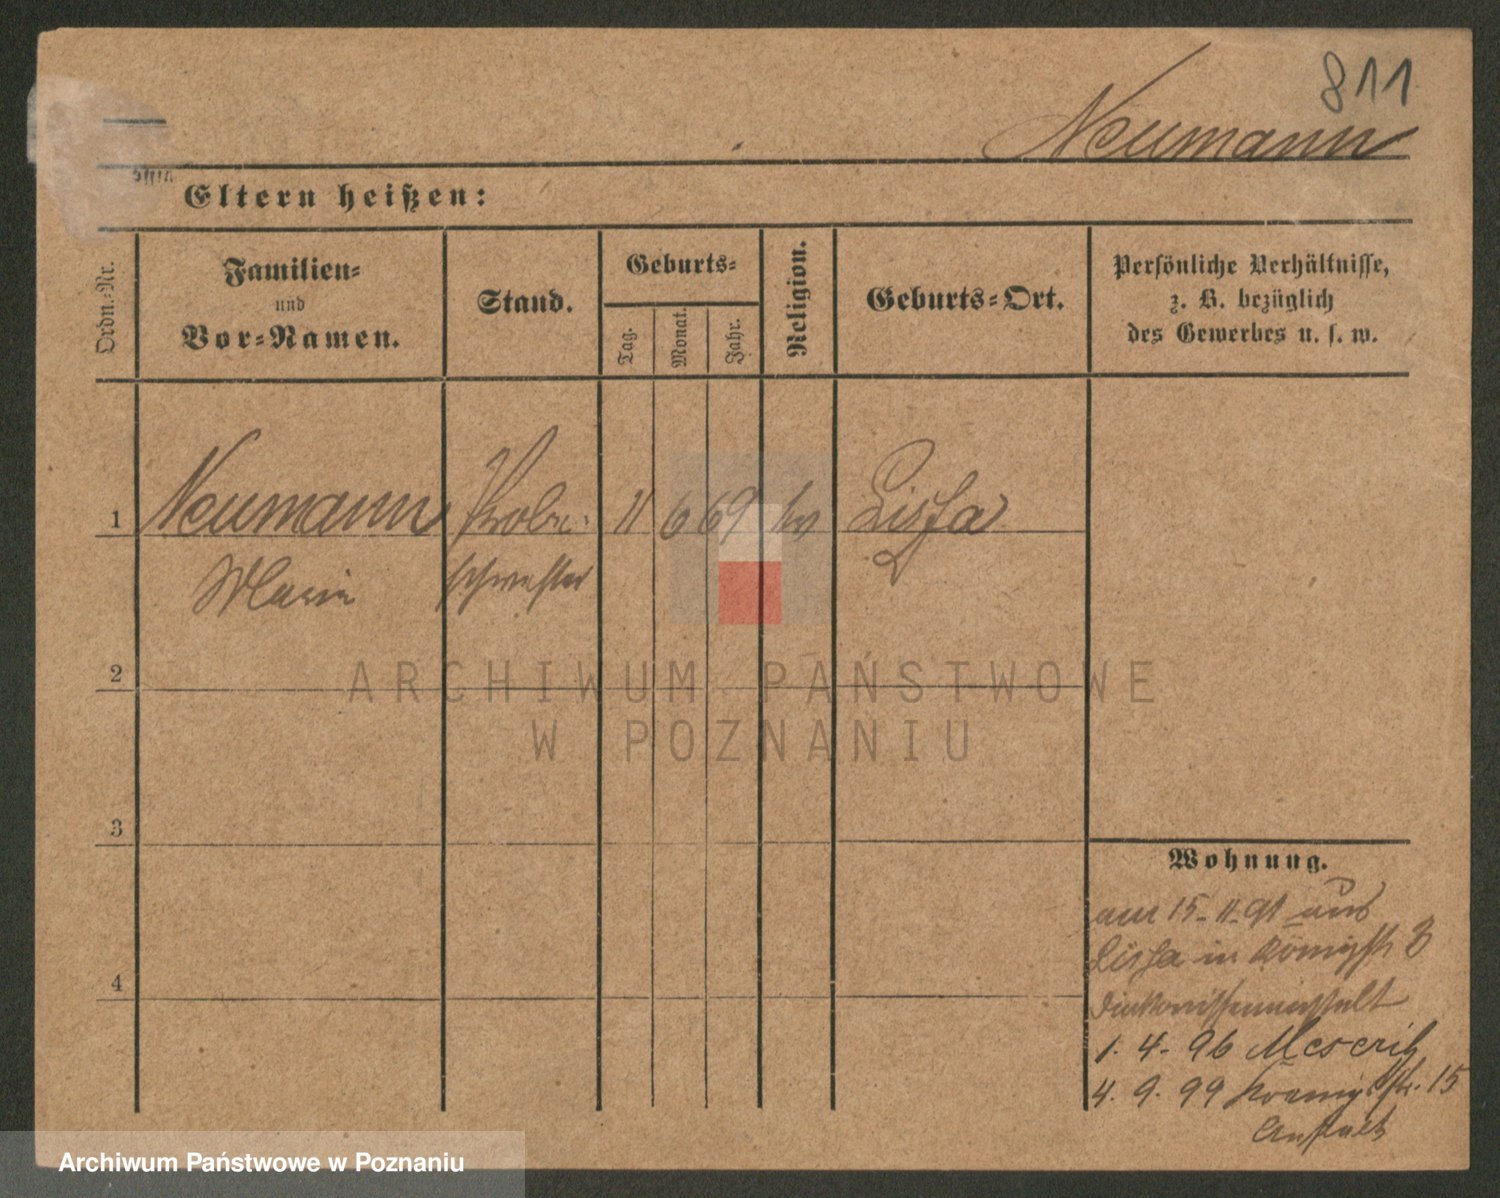 811
Neumann
Eltern heißen:
Ordn.-Nr.
Familien-
und
Vor-Namen.
Stand.
Geburts-
Tag.
Monat.
Jahr.
Religion.
Geburts-Ort.
Persönliche Verhältnisse,
z. B. bezüglich
des Gewerbes u. s. w.
1 Neumann Probe- 11 6 69 ev Lissa
Marie schwester
2
ARCHIWUM PAŃSTWOWE
W POZNANIU
3
Wohnung.
am 15-11-91 aus
Lissa in Königstr 8
4
Diakonissenanstalt
1. 4. 96 Meseritz
4. 9. 99 Koenigstr. 15
Anstalt
Archiwum Państwowe w Poznaniu